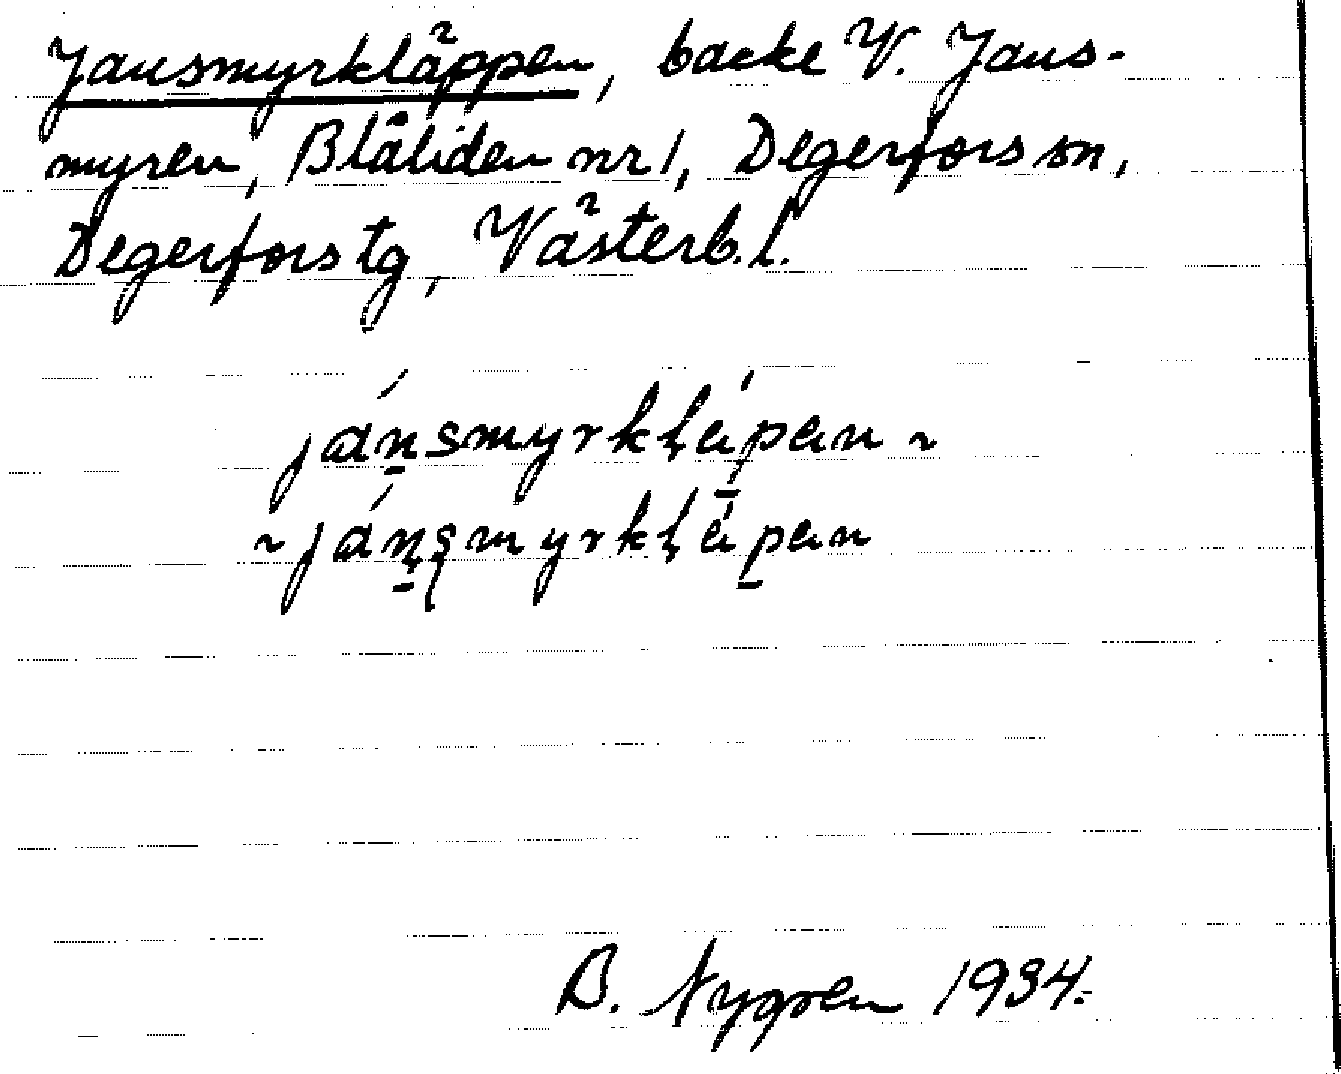 Jansmyrkläppen, backe V. Jans-
myren, Blåliden nr 1, Degerfors sn,
Degerfors tg, Västerb. l.
jánsmyrkḷápen ~
~ jánsmyrkḷápen
B. Nygren 1934.